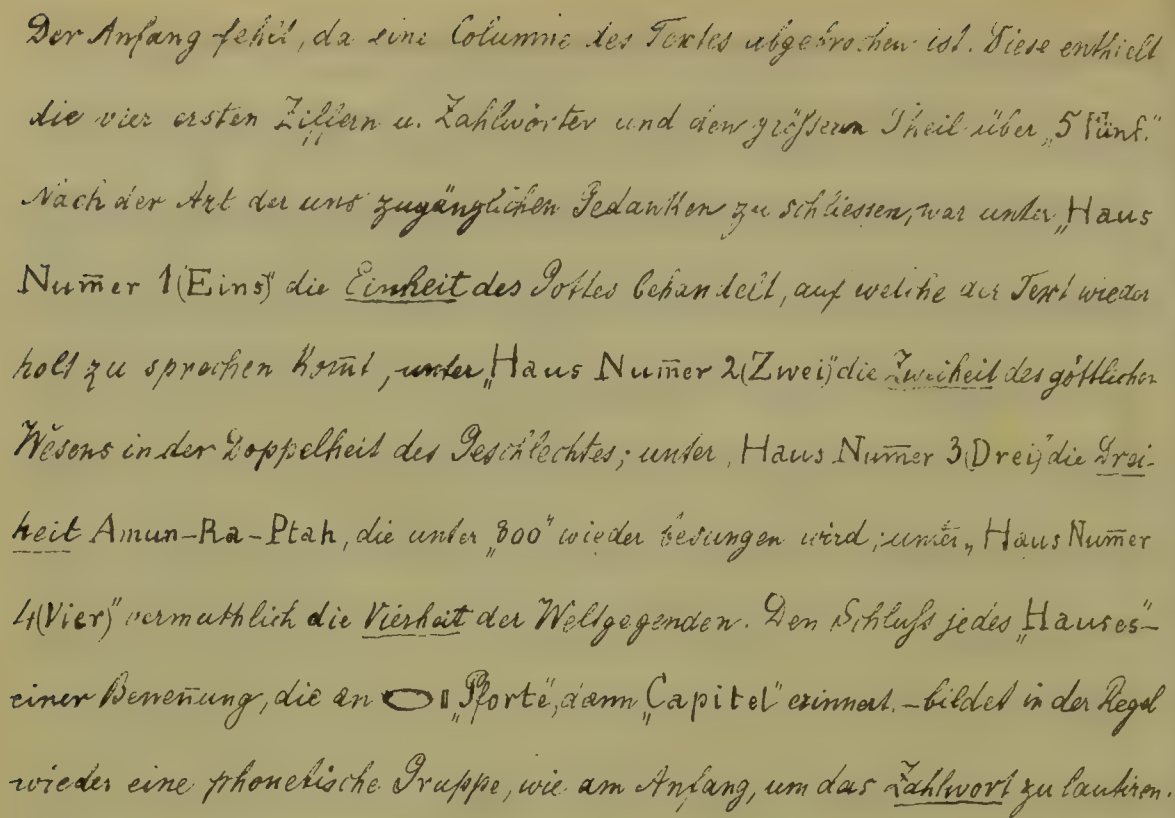 Der Anfang fehlt, da eine Columne des Textes abgebrochen ist. Diese enthielt
die vier ersten Ziffern u. Zahlwörter und den größern Theil über „5 fünf."
Nach der Art der uns zugänglichen Gedanken zu schliessen, war unter „Haus
Num̄er 1(Eins)" die Einheit des Gottes behandelt, auf welche der Text wieder
holt zu sprechen kom̄t, unter „Haus Num̄er 2(Zwei)" die Zweiheit des göttlichen
Wesens in der Doppelheit des Geschlechtes; unter „Haus Num̄er 3(Drei)" die Drei-
heit Amun-Ra-Ptah, die unter „300" wieder besungen wird; unter „Haus Num̄er
4(Vier)" vermuthlich die Vierheit der Weltgegenden. Den Schluß jedes „Hauses" –
einer Benen̄ung, die an „Pforte", dann „Capitel" erinnert – bildet in der Regel
wieder eine phonetische Gruppe, wie am Anfang, um das Zahlwort zu lautiren.